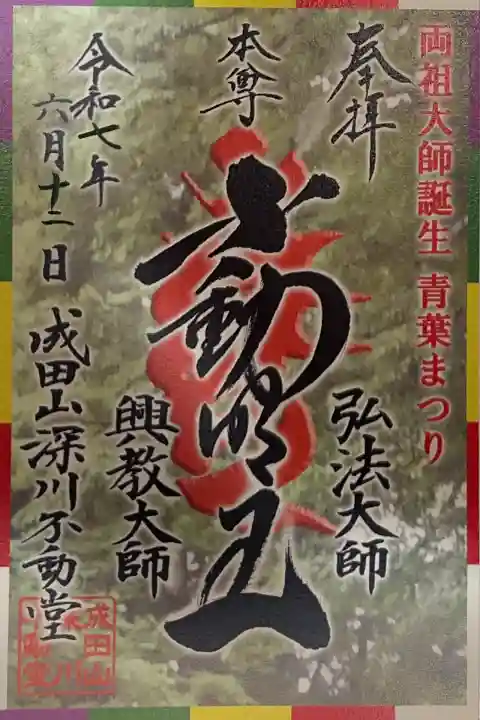 両祖大師誕生 青葉まつり
奉拝
弘法大師
本尊
不動明王
興教大師
令和七年
六月十二日
成田山深川不動堂